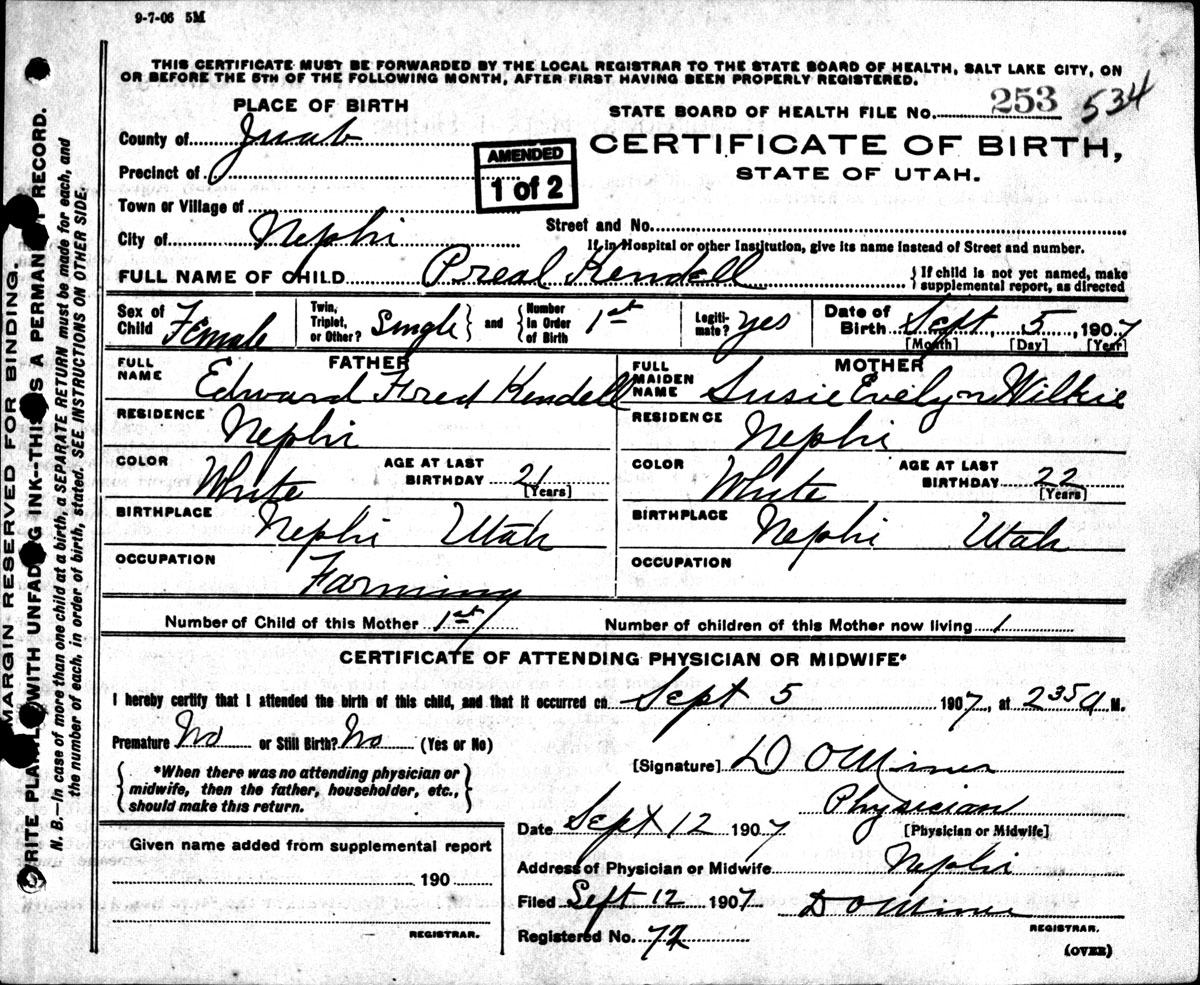 9-7-06 5M
THIS CERTIFICATE MUST BE FORWARDED BY THE LOCAL REGISTRAR TO THE STATE BOARD OF HEALTH, SALT LAKE CITY, ON
OR BEFORE THE 5TH OF THE FOLLOWING MONTH, AFTER FIRST HAVING BEEN PROPERLY REGISTERED.
PLACE OF BIRTH
STATE BOARD OF HEALTH FILE No. 253 534
County of Juab
CERTIFICATE OF BIRTH,
STATE OF UTAH.
AMENDED
1 of 2
Precinct of
Town or Village of
Street and No.
City of Nephi
If in Hospital or other Institution, give its name instead of Street and number.
FULL NAME OF CHILD Preal Kendell
{ If child is not yet named, make
supplemental report, as directed
Sex of Child Female
Twin, Triplet, or Other? Single } and { Number in Order of Birth 1st
Legiti-mate? yes
Date of Birth Sept, 5, 1907
[Month] [Day] [Year]
FATHER
FULL NAME Edward Fred Kendell
MOTHER
FULL MAIDEN NAME Susie Evelyn Wilkie
RESIDENCE Nephi
RESIDENCE Nephi
COLOR White AGE AT LAST BIRTHDAY 21 [Years]
COLOR White AGE AT LAST BIRTHDAY 22 [Years]
BIRTHPLACE Nephi Utah
BIRTHPLACE Nephi Utah
OCCUPATION Farming
OCCUPATION
Number of Child of this Mother 1st
Number of children of this Mother now living 1
CERTIFICATE OF ATTENDING PHYSICIAN OR MIDWIFE*
I hereby certify that I attended the birth of this child, and that it occurred on Sept 5 1907, at 2 35 a M.
Premature No or Still Birth? No (Yes or No)
{ *When there was no attending physician or
midwife, then the father, householder, etc.,
should make this return. }
[Signature] D O Miner
Physician
[Physician or Midwife]
Date Sept 12 1907
Address of Physician or Midwife Nephi
Filed Sept 12 1907 D O Miner
REGISTRAR.
Registered No. 72
(OVER)
Given name added from supplemental report
190
REGISTRAR.
MARGIN RESERVED FOR BINDING.
RITE PLAINLY WITH UNFADING INK--THIS IS A PERMANENT RECORD.
N. B.—In case of more than one child at a birth, a SEPARATE RETURN must be made for each, and
the number of each, in order of birth, stated. SEE INSTRUCTIONS ON OTHER SIDE.